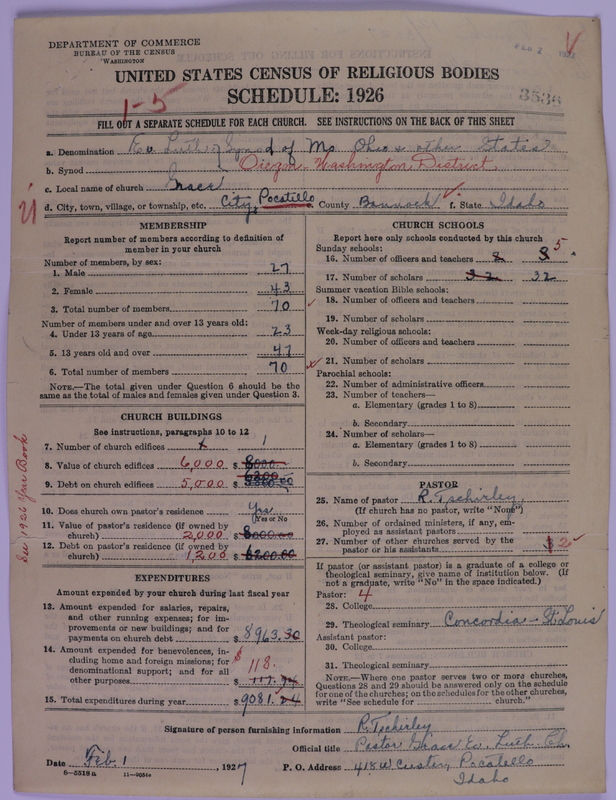 DEPARTMENT OF COMMERCE
BUREAU OF THE CENSUS
WASHINGTON
UNITED STATES CENSUS OF RELIGIOUS BODIES
SCHEDULE: 1926
3536
1-5
FILL OUT A SEPARATE SCHEDULE FOR EACH CHURCH. SEE INSTRUCTIONS ON THE BACK OF THIS SHEET
a. Denomination Ev. Luth. Synod of Mo. Ohio & other States
b. Synod Oregon, Washington District
c. Local name of church Grace
d. City, town, village, or township, etc. City Pocatello e. County Bannock f. State Idaho
MEMBERSHIP
Report number of members according to definition of member in your church
Number of members, by sex:
1. Male 27
2. Female 43
3. Total number of members 70
Number of members under and over 13 years old:
4. Under 13 years of age 23
5. 13 years old and over 47
6. Total number of members 70
NOTE.—The total given under Question 6 should be the same as the total of males and females given under Question 3.
CHURCH BUILDINGS
See instructions, paragraphs 10 to 12
7. Number of church edifices x 1
8. Value of church edifices 6,000 $ 8000
9. Debt on church edifices 5,000 $ 6200
10. Does church own pastor's residence Yes
(Yes or No)
11. Value of pastor's residence (if owned by church) 2,000 $ 8000.00
12. Debt on pastor's residence (if owned by church) 1,200 $ 6200.00
See 1926 Year Book
EXPENDITURES
Amount expended by your church during last fiscal year
13. Amount expended for salaries, repairs, and other running expenses; for improvements or new buildings; and for payments on church debt $ 8963.30
14. Amount expended for benevolences, including home and foreign missions; for denominational support; and for all other purposes $ 118. $ 117.94
15. Total expenditures during year $ 9081.24
CHURCH SCHOOLS
Report here only schools conducted by this church
Sunday schools:
16. Number of officers and teachers 8 8 5
17. Number of scholars 32 32
Summer vacation Bible schools:
18. Number of officers and teachers
19. Number of scholars
Week-day religious schools:
20. Number of officers and teachers
21. Number of scholars
Parochial schools:
22. Number of administrative officers
23. Number of teachers—
a. Elementary (grades 1 to 8)
b. Secondary
24. Number of scholars—
a. Elementary (grades 1 to 8)
b. Secondary
PASTOR
25. Name of pastor R. Tschirley
(If church has no pastor, write "None")
26. Number of ordained ministers, if any, employed as assistant pastors
27. Number of other churches served by the pastor or his assistants 2
If pastor (or assistant pastor) is a graduate of a college or theological seminary, give name of institution below. (If not a graduate, write "No" in the space indicated.)
Pastor: 4
28. College
29. Theological seminary Concordia - St. Louis
Assistant pastor:
30. College
31. Theological seminary
NOTE.—Where one pastor serves two or more churches, Questions 28 and 29 should be answered only on the schedule for one of the churches; on the schedules for the other churches, write "See schedule for church."
Signature of person furnishing information R. Tschirley
Official title Pastor Grace Ev. Luth. Ch.
Date Feb. 1, 1927 P. O. Address 418 W. Custer, Pocatello
Idaho
8-5518a 11-9054